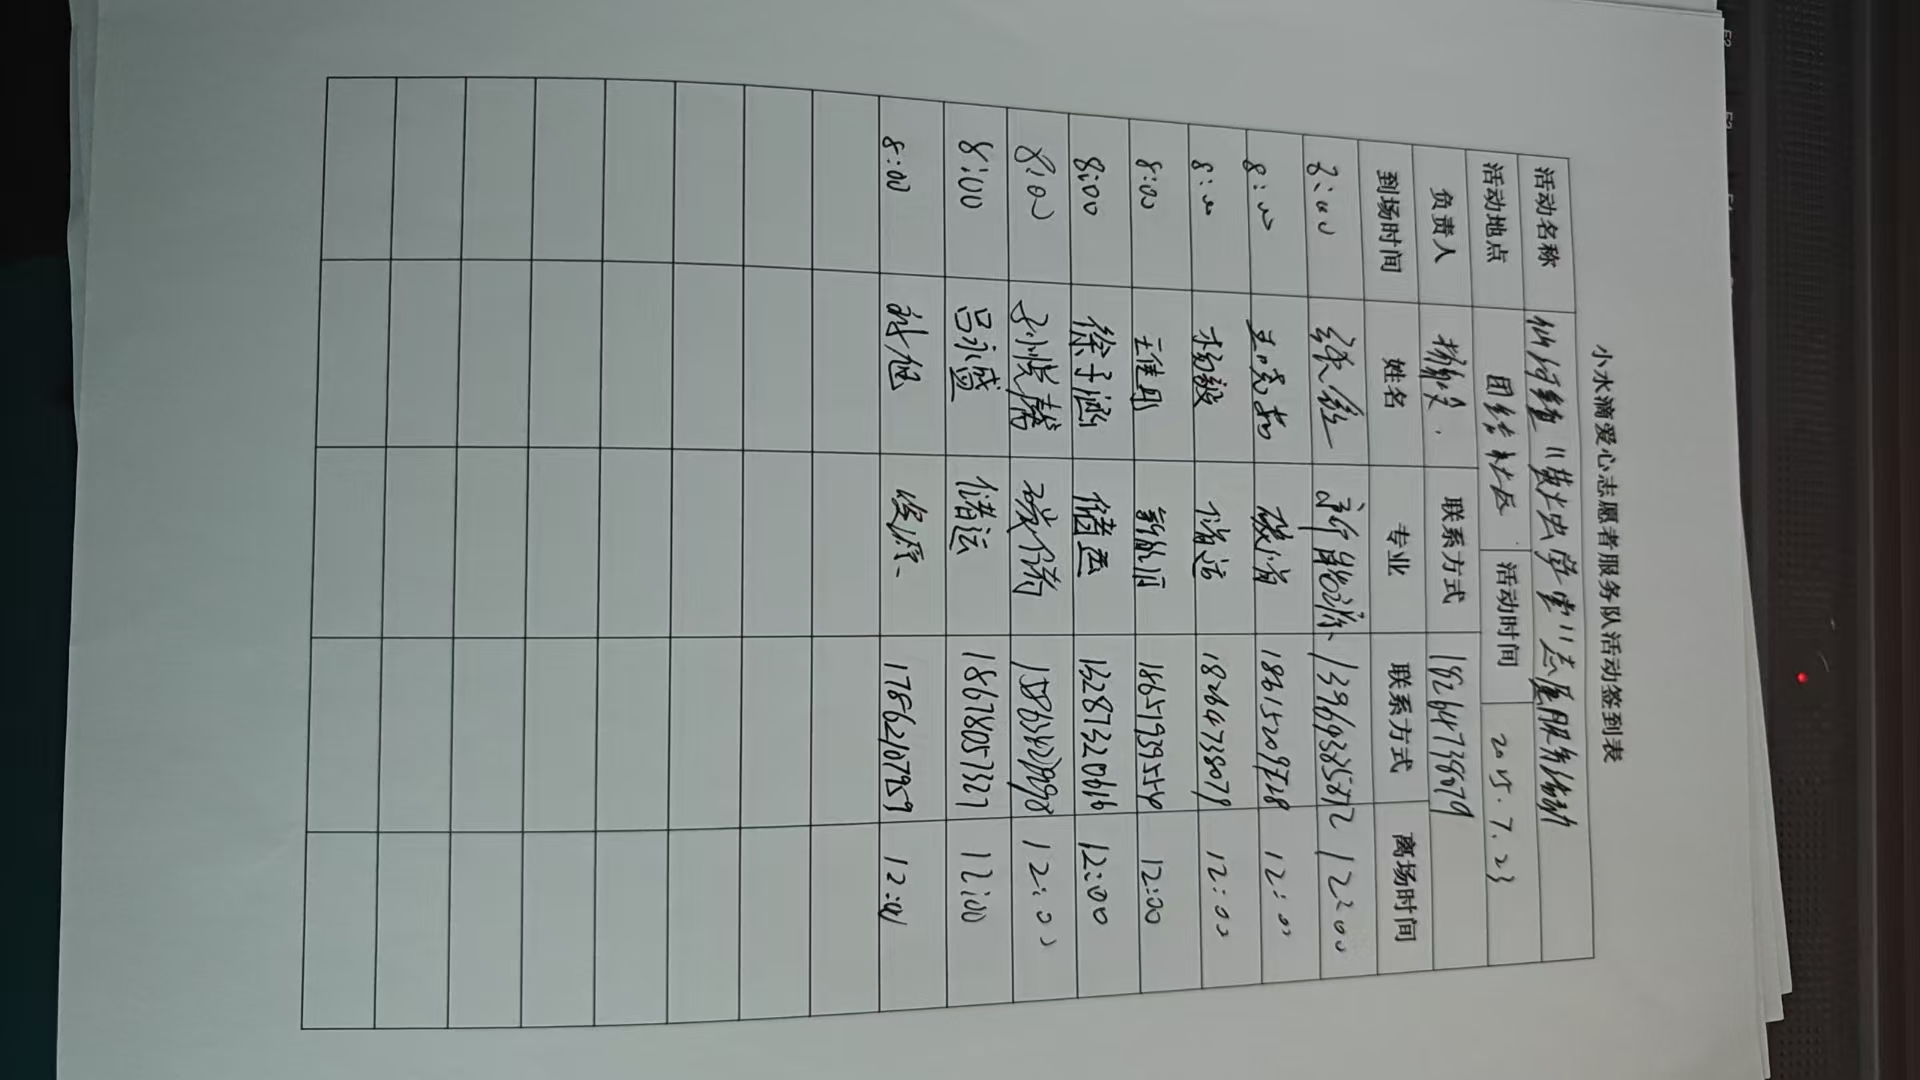 小水滴爱心志愿者服务队活动签到表
活动名称 仙河镇"萤火虫学堂"志愿服务活动
活动地点 团结社区 活动时间 2025.7.23
负责人 联系方式 18264738079
到场时间 姓名 专业 联系方式 离场时间
8:00 张红 新能源 13969385872 12:00
8:00 碳储 18615209728 12:00
8:00 杨毅 储运 18264738079 12:00
8:00 王佳丹 新能源 18651939556 12:00
8:00 徐子涵 储运 13287320616 12:00
8:00 孙悦馨 碳储 12:00
8:00 吕永盛 储运 18678057327 12:00
8:00 资源 17862107959 12:00